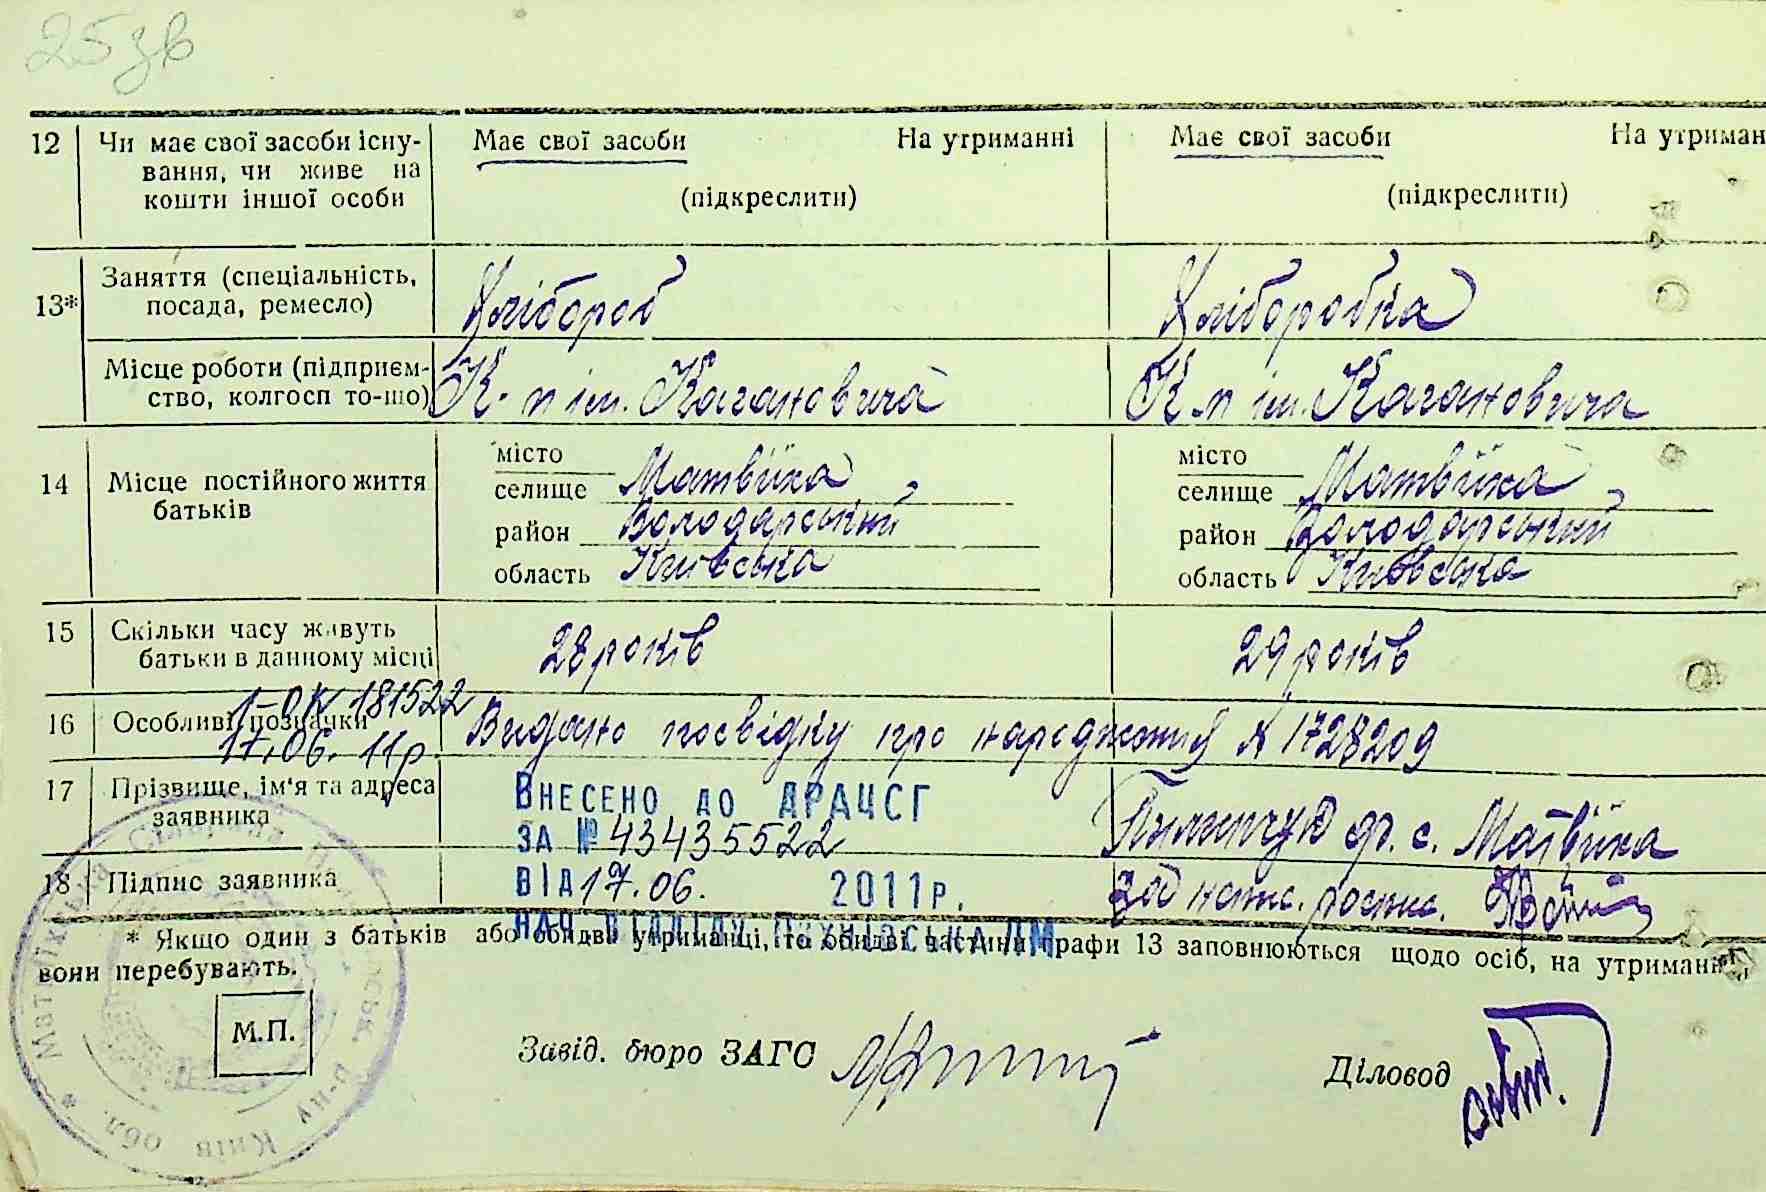 25 зв
12 Чи має свої засоби існу- Має свої засоби На утриманні Має свої засоби На утриман
вання, чи живе на
кошти іншої особи (підкреслити) (підкреслити)
13* Заняття (спеціальність, Хлібороб Хліборобка
посада, ремесло)
Місце роботи (підприєм- К-п ім. Кагановича К-п ім. Кагановича
ство, колгосп то-що)
14 Місце постійного життя місто місто
батьків селище Матвіїха селище Матвіїха
район Володарський район Володарський
область Київська область Київська
15 Скільки часу живуть 28 років 29 років
батьки в данному місці
1-ОК 181522
16 Особливі позначки Видано посвідку про народження № 1728209
17.06.11р
17 Прізвище, ім'я та адреса ВНЕСЕНО ДО ДРАЦСГ
заявника ЗА № 43435522 с. Матвіїха
18 Підпис заявника ВІД 17.06. 2011 р.
НАЧ ВІДДІЛУ
* Якщо один з батьків або обидві утриманці, то обидві частини графи 13 заповнюються щодо осіб, на утриманні
вони перебувають.
М.П.
Завід. бюро ЗАГС Діловод